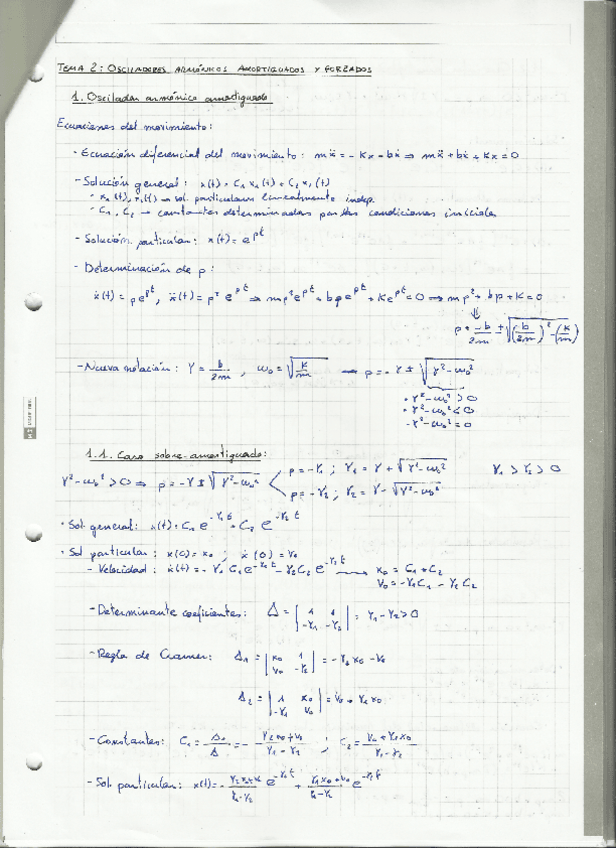 TEMA 2: OSCILADORES ARMÓNICOS AMORTIGUADOS Y FORZADOS
1. Oscilador armónico amortiguado
Ecuaciones del movimiento:
- Ecuación diferencial del movimiento: mẍ = - Kx - bẋ ⇒ mẍ + bẋ + Kx = 0
- Solución general: x(t) = C₁ x₁(t) + C₂ x₂(t)
- x₁(t), x₂(t) → sol. particulares linealmente indep.
- C₁, C₂ → constantes determinadas por las condiciones iniciales
- Solución particular: x(t) = e^{pt}
- Determinación de p:
ẋ(t) = p e^{pt}, ẍ(t) = p² e^{pt} ⇒ mp² e^{pt} + bp e^{pt} + K e^{pt} = 0 ⇒ mp² + bp + K = 0
⇓
p = -b/2m ± √((b/2m)² - (K/m))
- Nueva notación: γ = b/2m , ω₀ = √(K/m) → p = - γ ± √(γ² - ω₀²)
· γ² - ω₀² > 0
· γ² - ω₀² < 0
- γ² - ω₀² = 0
1.1. Caso sobre-amortiguado:
γ² - ω₀² > 0 ⇒ p = - γ ± √(γ² - ω₀²)
p = - γ₁ ; γ₁ = γ + √(γ² - ω₀²) γ₁ > γ₂ > 0
p = - γ₂ ; γ₂ = γ - √(γ² - ω₀²)
· Sol general: x(t) = C₁ e^{-γ₁t} + C₂ e^{-γ₂t}
· Sol particular: x(0) = x₀ ; ẋ(0) = v₀
- Velocidad: ẋ(t) = - γ₁ C₁ e^{-γ₁t} - γ₂ C₂ e^{-γ₂t} → x₀ = C₁ + C₂
v₀ = - γ₁ C₁ - γ₂ C₂
- Determinante coeficientes: Δ = | 1 1 | = γ₁ - γ₂ > 0
| -γ₁ -γ₂ |
- Regla de Cramer: Δ₁ = | x₀ 1 | = - γ₂ x₀ - v₀
| v₀ -γ₂ |
Δ₂ = | 1 x₀ | = v₀ + γ₁ x₀
| -γ₁ v₀ |
- Constantes: C₁ = Δ₁/Δ = - (γ₂ x₀ + v₀)/(γ₁ - γ₂) ; C₂ = (v₀ + γ₁ x₀)/(γ₁ - γ₂)
- Sol. particular: x(t) = - (γ₂ x₀ + v₀)/(γ₁ - γ₂) e^{-γ₁t} + (γ₁ x₀ + v₀)/(γ₁ - γ₂) e^{-γ₂t}